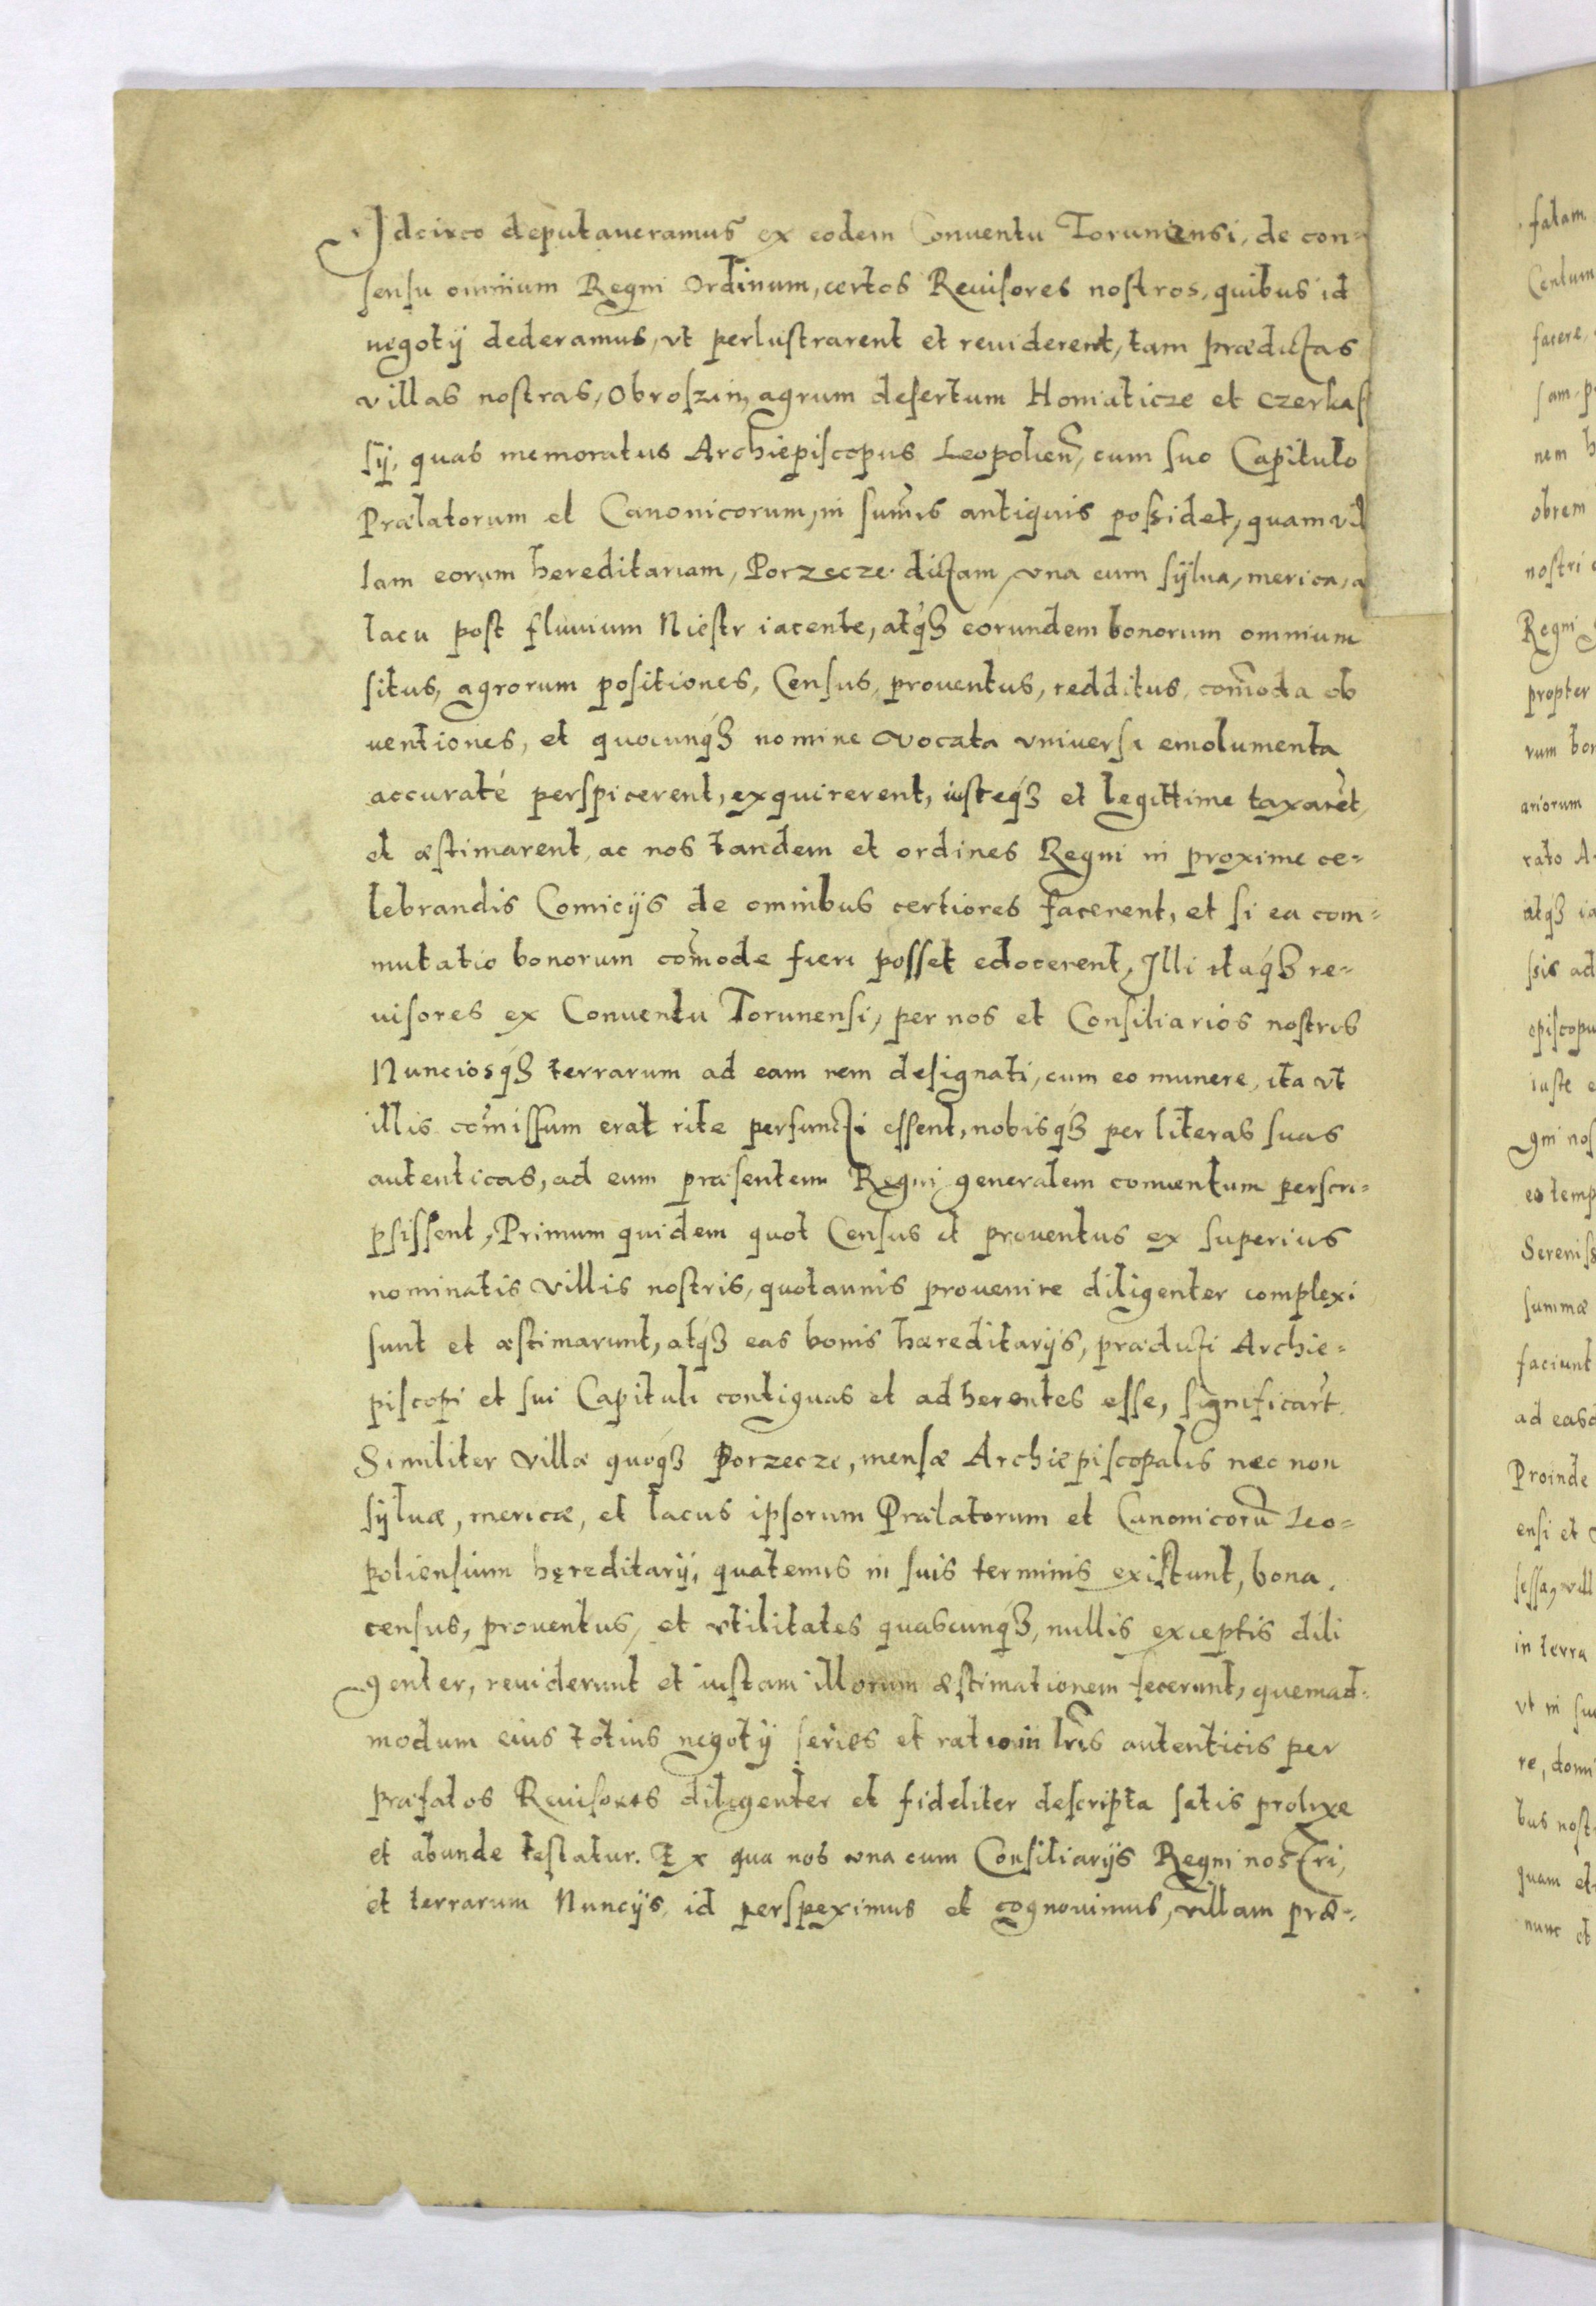 Idcirco deputaueramus ex eodem Conuentu Toruniensi, de con=
sensu omnium Regni Ordinum, certos Reuisores nostros, quibus id
negotij dederamus, vt perlustrarent et reuiderent, tam prædictas
villas nostras, Obroszin, agrum desertum Honiaticze et Czerkas
sij, quas memoratus Archiepiscopus Leopolień, cum suo Capitulo
Prælatorum et Canonicorum, in sum̃is antiquis possidet, quam vil
lam eorum hereditariam, Porzecze dictam, vna cum sylua, merica, a
lacu post fluuium Niestr iacente, atq́ꝫ eorundem bonorum omnium
situs, agrorum positiones, Census, prouentus, redditus, com̃oda ob
uentiones, et quocunq́ꝫ nomine vocata vniuersa emolumenta
accuraté perspicerent, exquirerent, iusteq́ꝫ et legittime taxarẽt,
et æstimarent, ac nos tandem et ordines Regni in proxime ce=
lebrandis Comicijs de omnibus certiores facerent, et si ea com=
mutatio bonorum com̃ode fieri posset edocerent, Illi itaq́ꝫ re=
uisores ex Conuentu Torunensi, per nos et Consiliarios nostros
Nunciosq́ꝫ terrarum ad eam rem designati, cum eo munere, ita vt
illis com̃issum erat rite perfuncti essent, nobisq́ꝫ per literas suas
autenticas, ad eum præsentem Regni generalem conuentum perscri=
psissent, Primum quidem quot Census et prouentus ex superius
nominatis villis nostris, quotannis prouenire diligenter complexi
sunt et æstimarunt, atq́ꝫ eas bonis hæreditarijs, prædicti Archie=
piscopi et sui Capituli contiguas et adherentes esse, significarũt.
Similiter villæ quoq́ꝫ Porzecze, mensæ Archiepiscopalis nec non
syluæ, mericæ, et lacus ipsorum Prælatorum et Canonicorũ Leo=
poliensium hęreditarij, quatenus in suis terminis existunt, bona,
census, prouentus, et vtilitates quascunq́ꝫ, nullis exceptis dili
genter, reuiderunt et iustam illorum æstimationem fecerunt, quemad=
modum eius totius negotij series et ratio in lr̃is autenticis per
præfatos Reuisores diligenter et fideliter descripta satis prolixe
et abunde testatur. Ex qua nos vna cum Consiliarijs Regni nostri,
et terrarum Nuncijs, id perspeximus et cognouimus, villam præ=
fatam
Centum
facere,
sam, p
nem h
obrem
nostri
Regni
propter
rum bo
ariorum
rato A
atq́ꝫ ia
ssis ad
episcopu
iuste e
gni nos
eo temp
Sereniss
summæ
faciunt
ad easd
Proinde
ensi et
sessa, vill
in terra
vt in su
re, domi
bus nost
quam et
nunc et